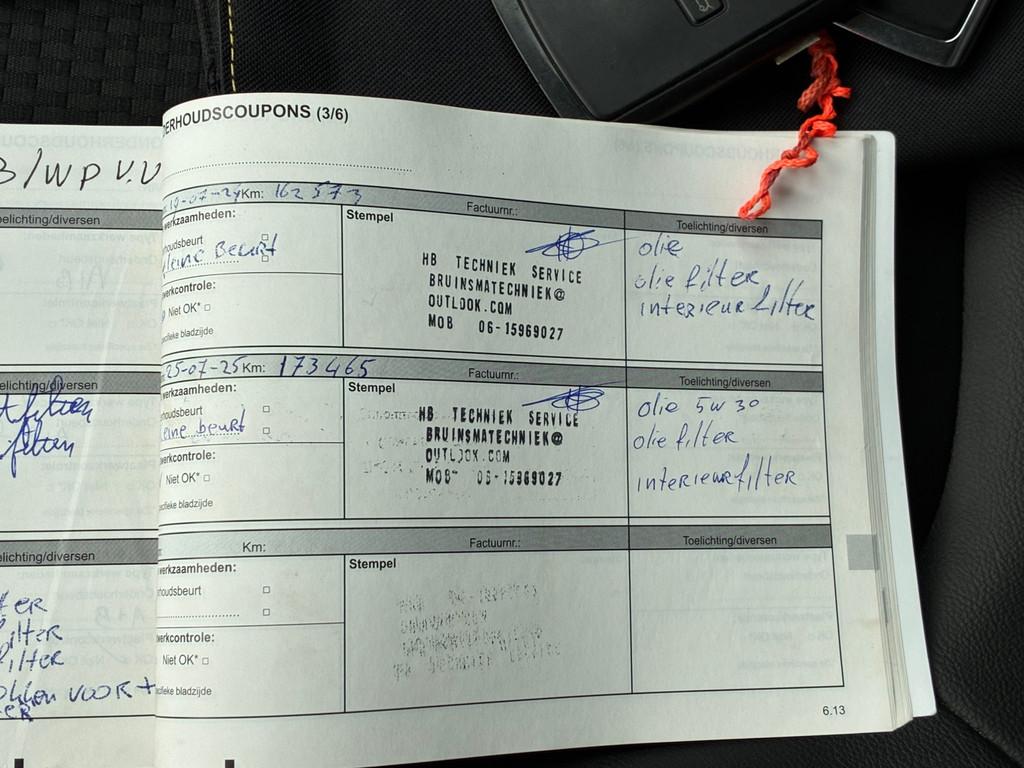 ERHOUDSCOUPONS (3/6)
B/WP V.V
elichting/diversen
10-07-24 Km: 162573
Factuurnr.:
Toelichting/diversen
werkzaamheden:
Stempel
houdsbeurt
kleine Beurt
HB TECHNIEK SERVICE
BRUINSMATECHNIEK@
OUTLOOK.COM
MOB 06-15969027
olie
olie filter
interieur filter
werkcontrole:
Niet OK*
cifieke bladzijde
25-07-25 Km: 173465
Factuurnr.:
Toelichting/diversen
elichting/diversen
werkzaamheden:
Stempel
houdsbeurt
eine beurt
HB TECHNIEK SERVICE
BRUINSMATECHNIEK@
OUTLOOK.COM
MOB 06-15969027
olie 5W30
olie filter
interieurfilter
werkcontrole:
Niet OK*
cifieke bladzijde
Km:
Factuurnr.:
Toelichting/diversen
elichting/diversen
werkzaamheden:
Stempel
houdsbeurt
werkcontrole:
Niet OK*
cifieke bladzijde
ilter
ilter
VOOR +
6.13